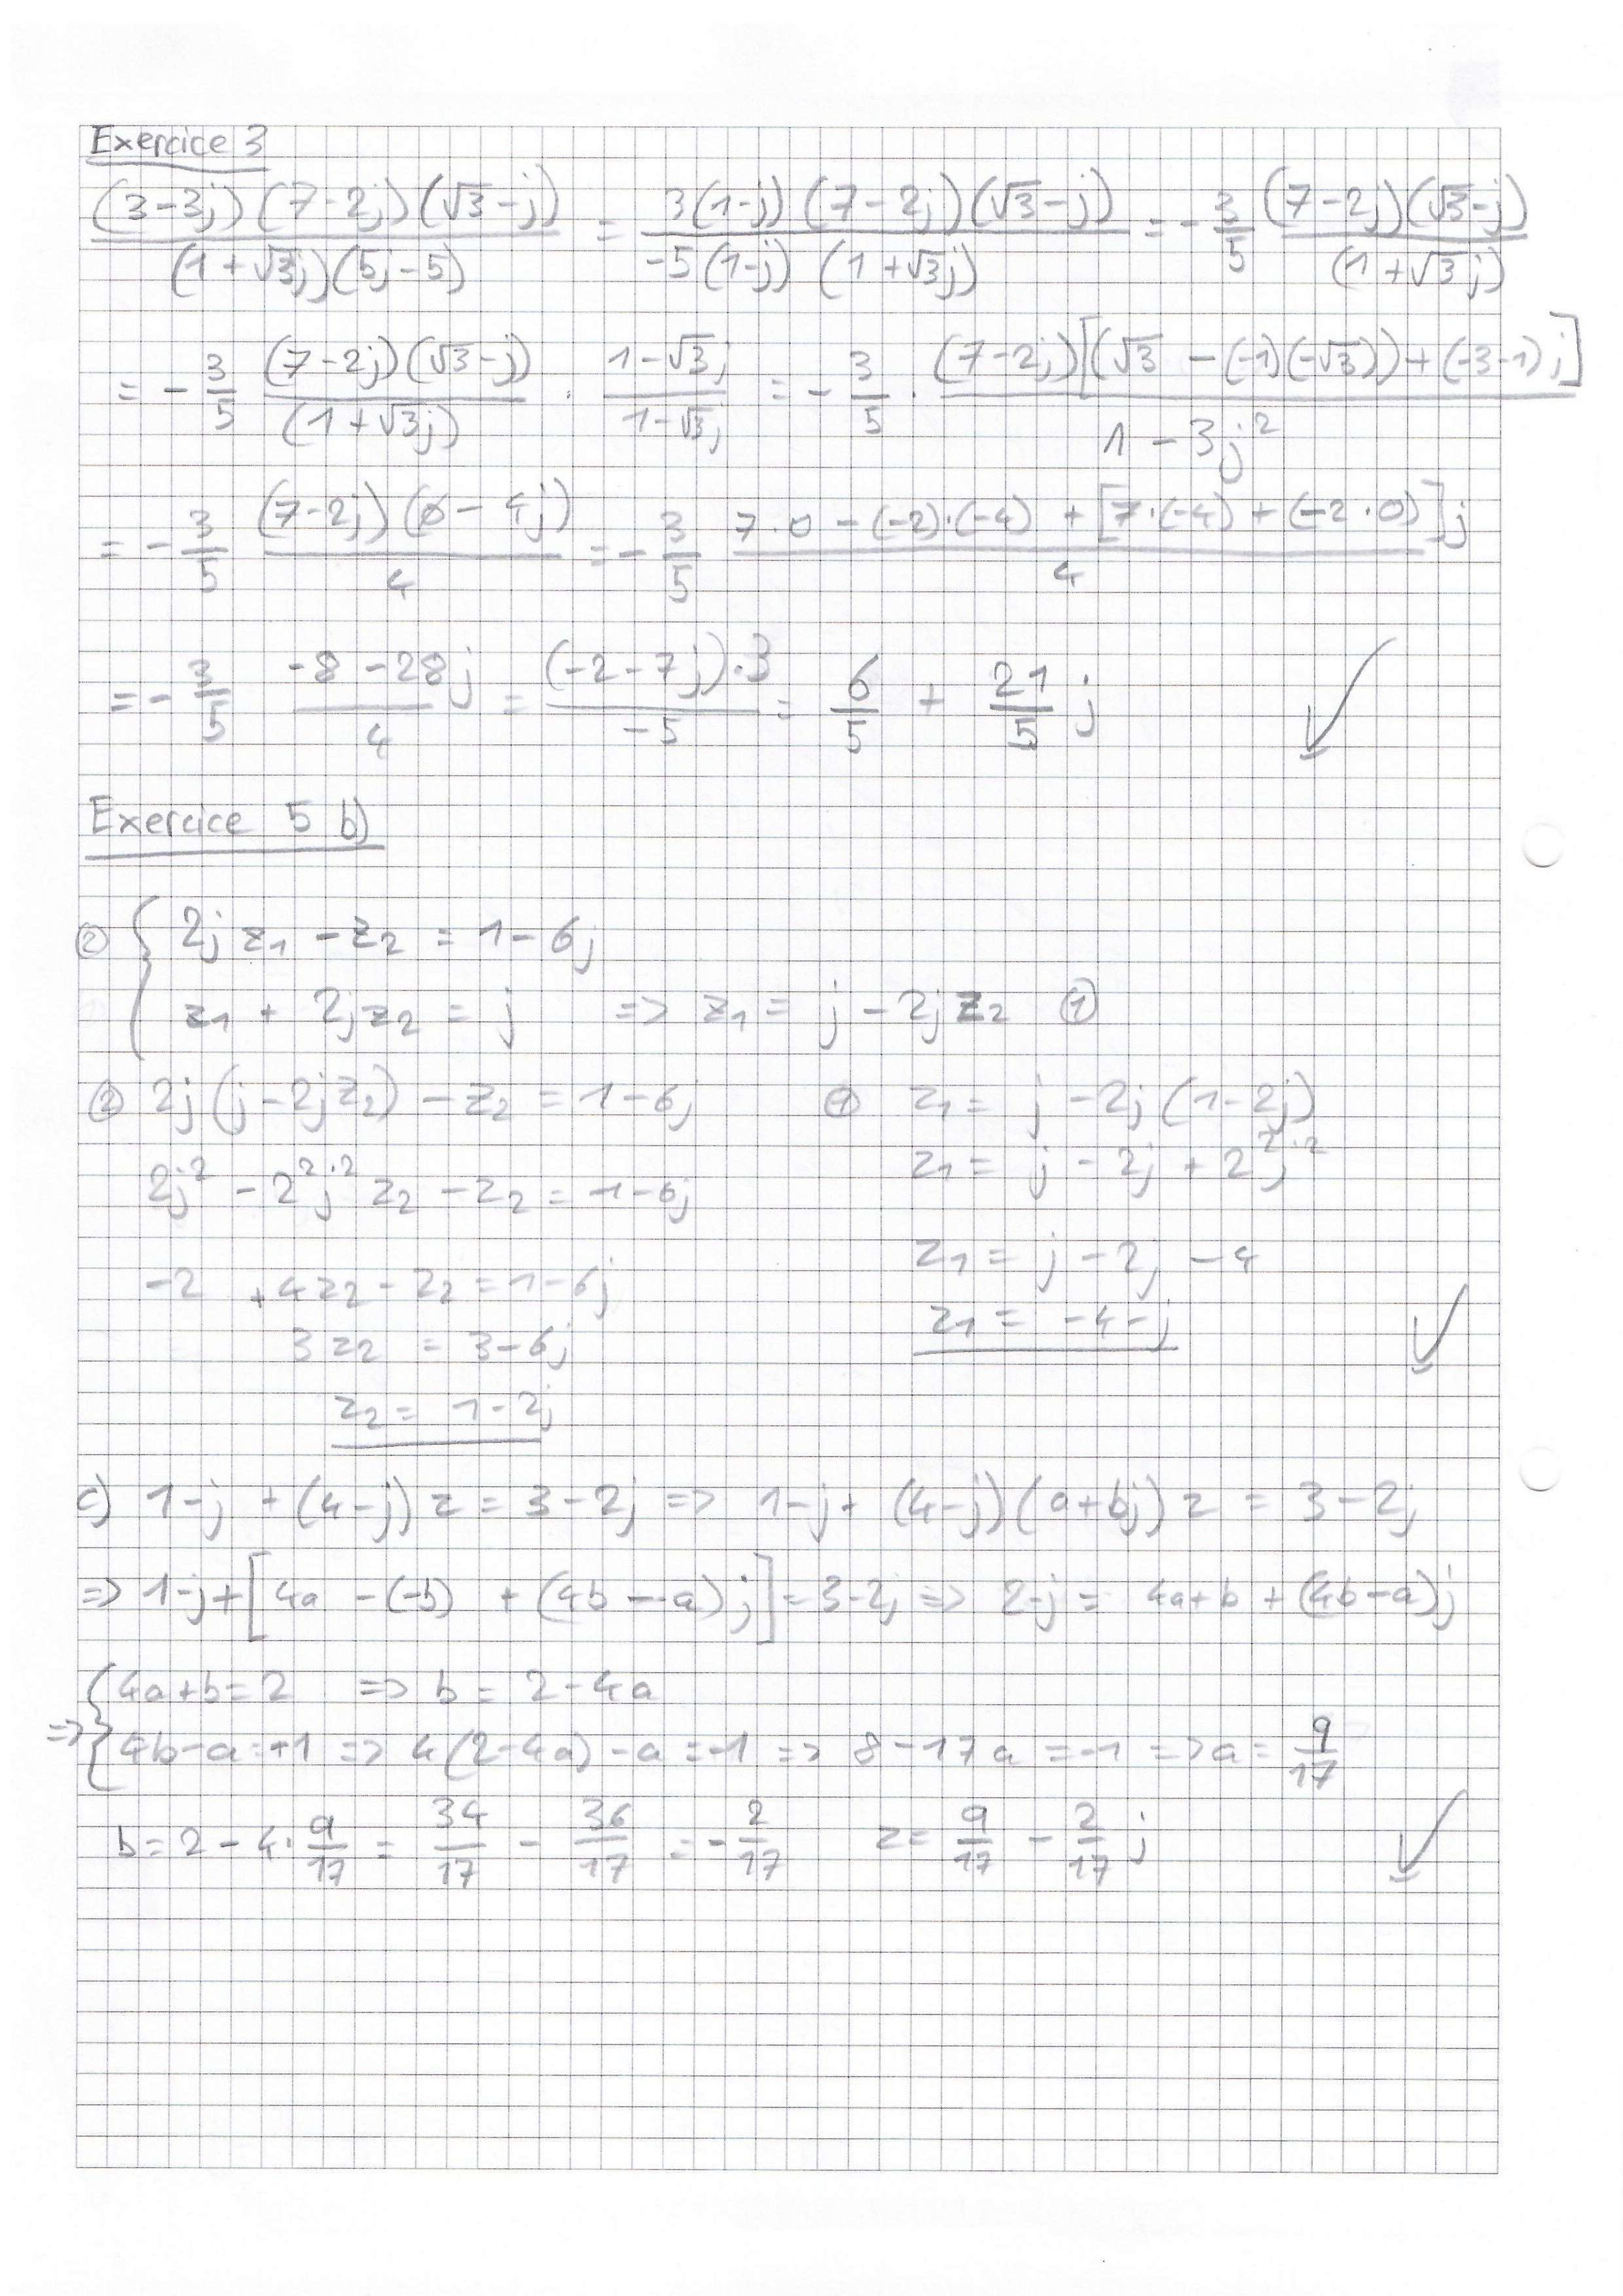 Exercice 3
(3-3j)(7-2j)(√3-j) / (1+√3j)(5j-5) = 3(1-j)(7-2j)(√3-j) / -5(1-j)(1+√3j) = -3/5 (7-2j)(√3-j) / (1+√3j)
= -3/5 (7-2j)(√3-j) / (1+√3j) · 1-√3j / 1-√3j = -3/5 · (7-2j)[(√3 -(-1)(-√3))+(-3-1)j] / 1-3j²
= -3/5 (7-2j)(0-4j) / 4 = -3/5 7·0-(-2)·(-4) + [7·(-4)+(-2·0)]j / 4
= -3/5 -8-28j / 4 = (-2-7j)·3 / -5 = 6/5 + 21/5 j
Exercice 5 b)
② { 2j z₁ - z₂ = 1-6j
z₁ + 2j z₂ = j => z₁ = j - 2j z₂ ①
② 2j(j-2jz₂) - z₂ = 1-6j ① z₁ = j - 2j(1-2j)
2j² - 2²j² z₂ - z₂ = 1-6j z₁ = j - 2j + 2²j²
-2 +4z₂ - z₂ = 1-6j z₁ = j - 2j - 4
3z₂ = 3-6j z₁ = -4-j
z₂ = 1-2j
c) 1-j + (4-j) z = 3-2j => 1-j + (4-j)(a+bj) z = 3-2j
=> 1-j+[4a -(-b) + (4b-a)j] = 3-2j => 2-j = 4a+b + (4b-a)j
=> { 4a+b=2 => b = 2-4a
4b-a=+1 => 4(2-4a)-a=-1 => 8-17a=-1 => a = 9/17
b = 2-4·9/17 = 34/17 - 36/17 = -2/17 z = 9/17 - 2/17 j